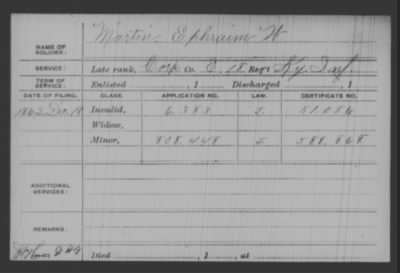 Martin Ephraim W
NAME OF SOLDIER:
SERVICE: Late rank, Corp Co. E, 18 Reg't Ky. Inf.
TERM OF SERVICE: Enlisted , 1 Discharged , 1
DATE OF FILING. CLASS. APPLICATION NO. LAW. CERTIFICATE NO.
1862 Dec. 18 Invalid, 6.783 51.084
Widow,
Minor, 808.448 588.868
ADDITIONAL SERVICES:
REMARKS:
Died , 1 , at